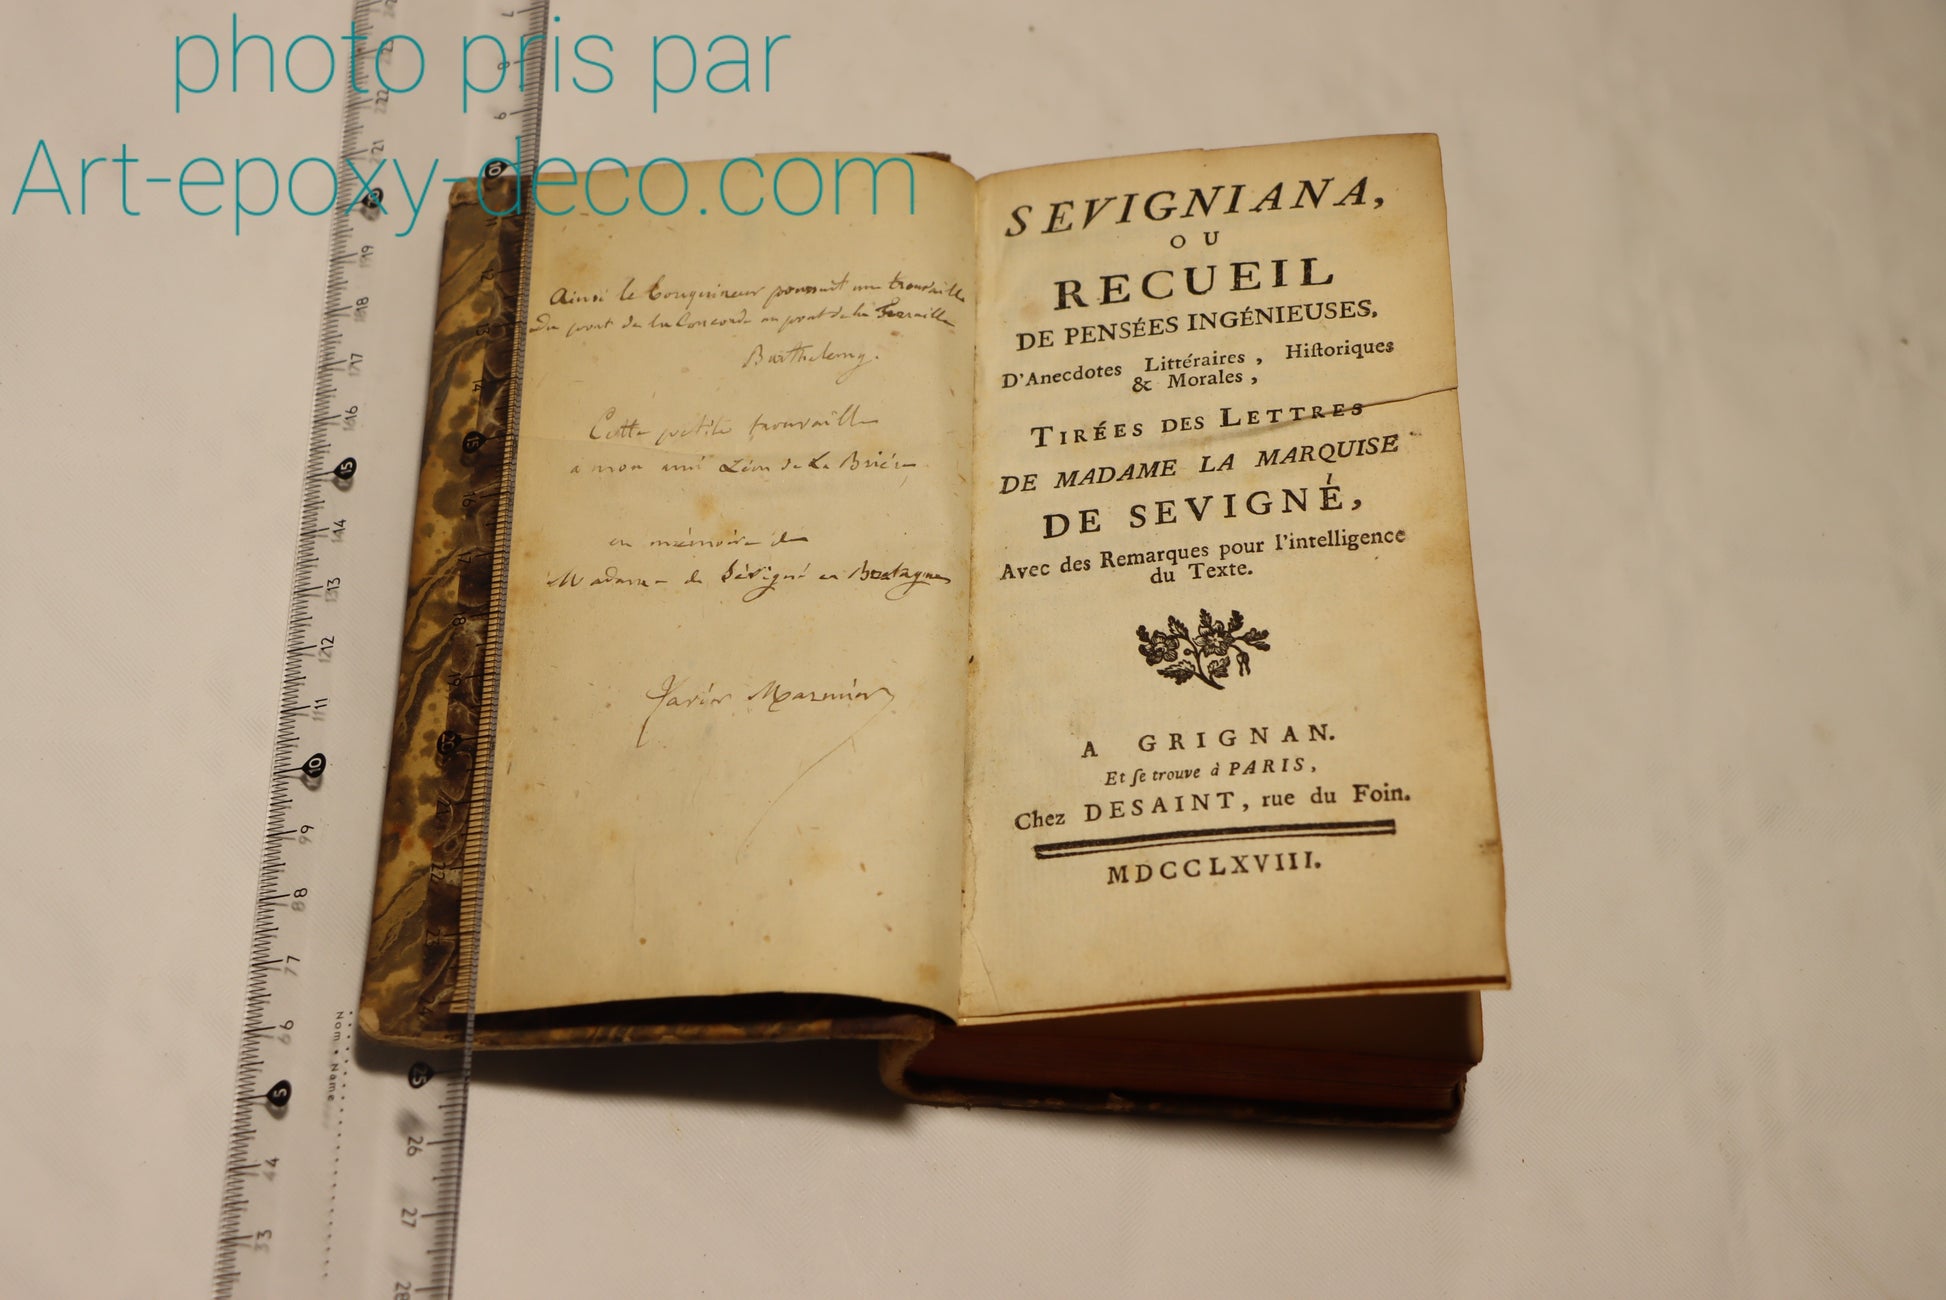 photo pris par
Art-epoxy-deco.com
Ainsi le bouquineur poursuit une trouvaille
du pont de la Concorde au pont de la Ferraille
Barthelemy.
Cette petite trouvaille
a mon ami Léon de La Brière
en mémoire de
Madame de Sévigné en Bretagne
Xavier Marmier
SEVIGNIANA,
OU
RECUEIL
DE PENSÉES INGÉNIEUSES.
D'Anecdotes Littéraires, Hiſtoriques
& Morales,
TIRÉES DES LETTRES
DE MADAME LA MARQUISE
DE SEVIGNÉ,
Avec des Remarques pour l'intelligence
du Texte.
A GRIGNAN.
Et ſe trouve à PARIS,
Chez DESAINT, rue du Foin.
MDCCLXVIII.
Nom • Name
22
21
19
18
17
16
15
14
13
12
11
10
9
8
7
6
5
4
3
7
8
9
10
12
13
14
15
16
17
18
19
20
22
23
24
25
26
27
28